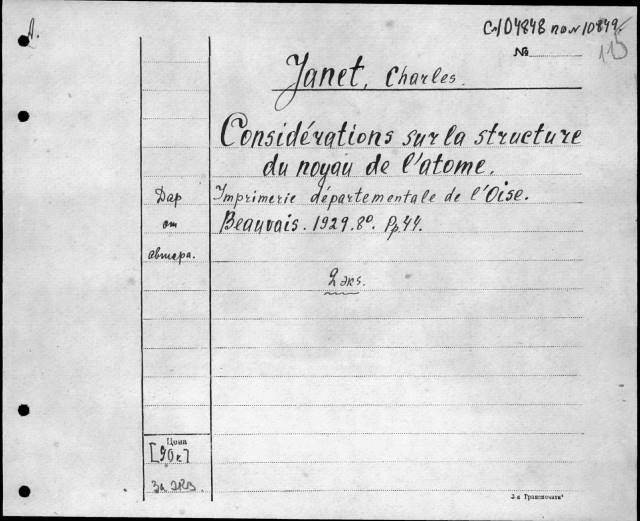 с 10848 по N 10849.
№
115
Janet, Charles.
Considérations sur la structure
du noyau de l'atome.
Дар Imprimerie départementale de l'Oise.
от Beauvais. 1929. 8º. Pp. 44.
автора.
2 экз.
Цена
[90к]
За экз.
3-я Гранпочати